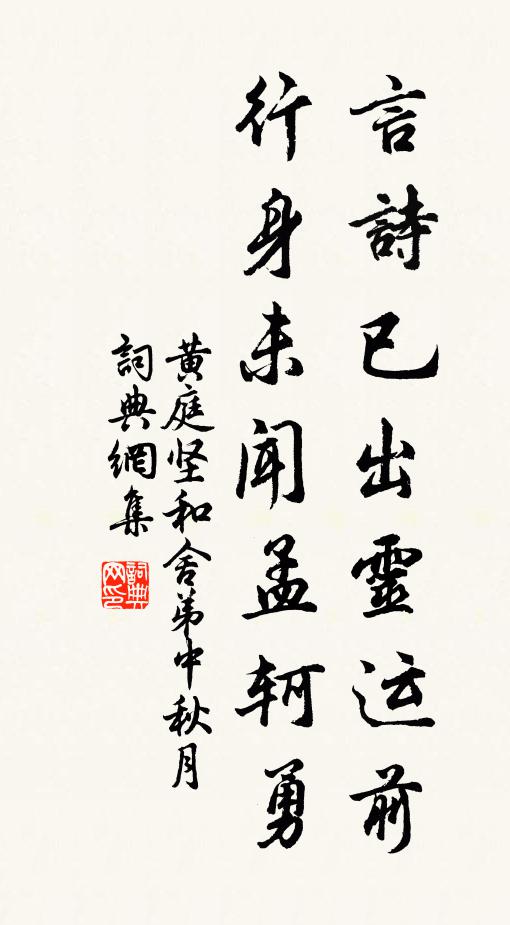 言詩已出靈运前
行身未聞孟轲勇
黃庭坚和舍弟中秋月
詞典網集
詞典网印